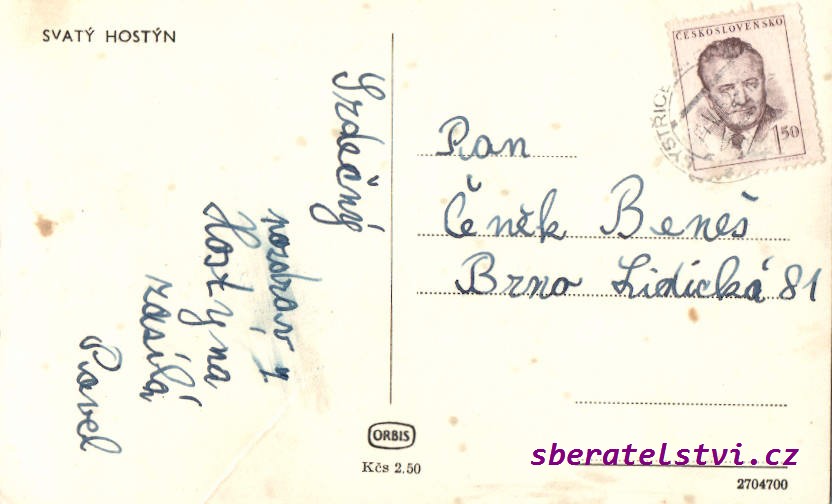 SVATÝ HOSTÝN
Srdečný
pozdrav z
Hostyna
zasílá
Pavel
ČESKOSLOVENSKO
1.50
YSTŘICE
Pan
Čeněk Beneš
Brno Lidická 81
ORBIS
Kčs 2.50
sberatelstvi.cz
2704700